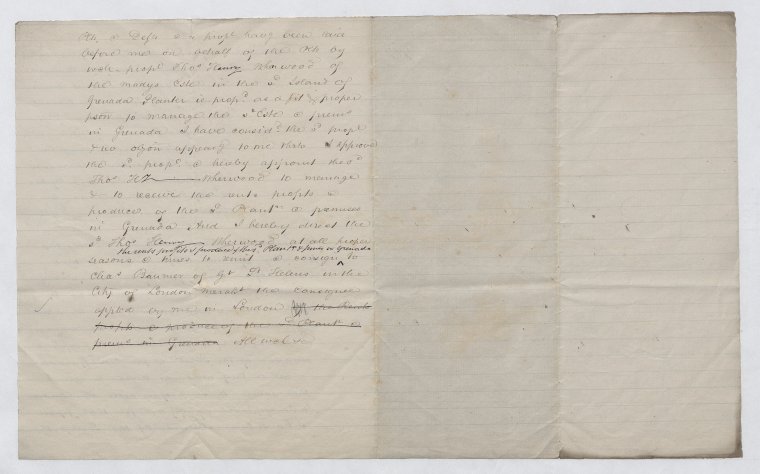 Pth & Deft & a propl having been laid
before me on behalf of the Pth by
wch propl Thos Henry Wherwood of
the Madys Este in the sd Island of
Grenada Planter is propd as a fit & proper
pson to manage the sd Este & prems
in Grenada I have considd the sd propl
& no objon appearg to me thto I approve
the sd propl & hereby appoint the sd
Thos Hy Wherwood to manage
& to receive the rents profits &
produce of the sd Plantn & premises
in Grenada And I hereby direct the
sd Thos Henry Wherwood at all proper
the rents profits & produce of the sd Plantn & prems in Grenada
seasons & times to remit & consign ^ to
Chas Baumer of Gt St Helens in the
City of London merch the consignee
appted by me in London the Rents
profits & produce of the sd Plantn &
prems in Grenada All wch